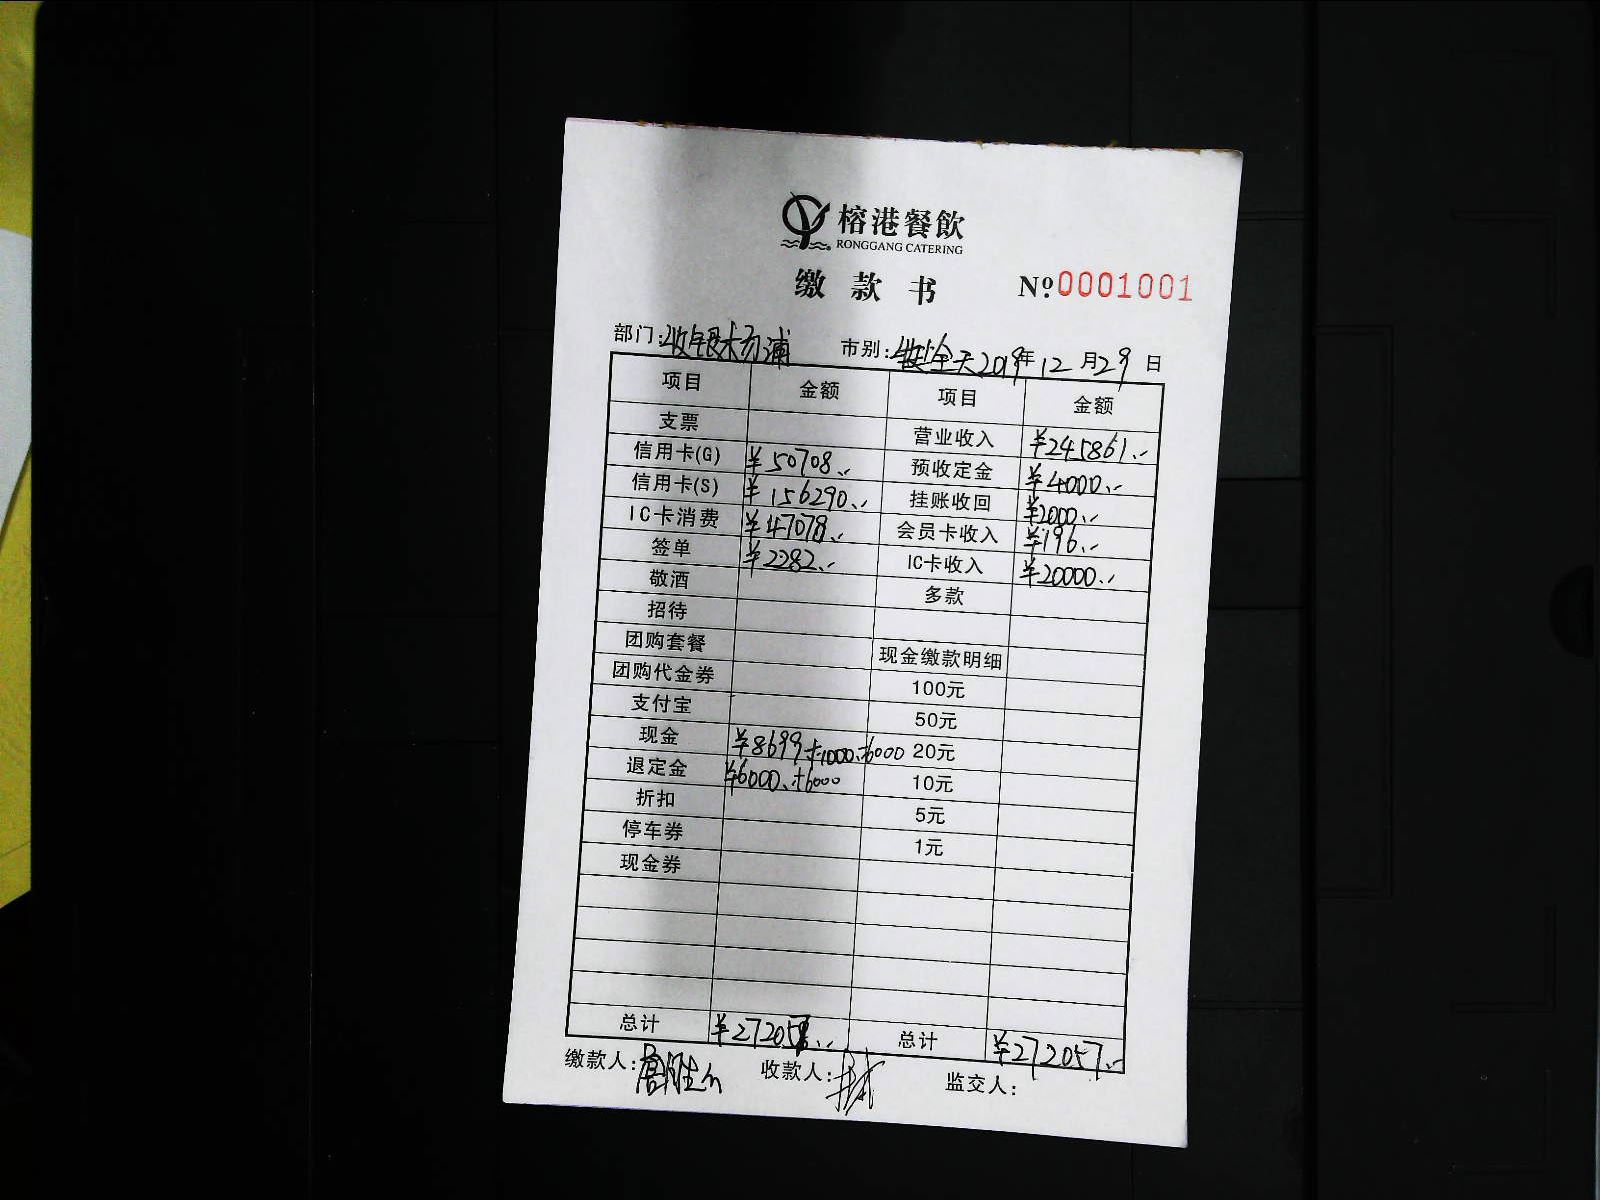 榕港餐飲
RONGGANG CATERING
缴款书 Nº:0001001
部门:收银杨浦 市别:全天2019年12月29日
项目 金额 项目 金额
支票 营业收入 ¥245861.-
信用卡(G) ¥50708.- 预收定金 ¥4000.-
信用卡(S) ¥156290.- 挂账收回 ¥2000.-
IC卡消费 ¥47078.- 会员卡收入 ¥196.-
签单 ¥2282.- IC卡收入 ¥20000.-
敬酒 多款
招待
团购套餐 现金缴款明细
团购代金券 100元
支付宝 50元
现金 ¥8699+1000.+6000 20元
退定金 ¥6000.+6000 10元
折扣 5元
停车券 1元
现金券
总计 ¥27205.- 总计 ¥272057.-
缴款人: 收款人: 监交人: